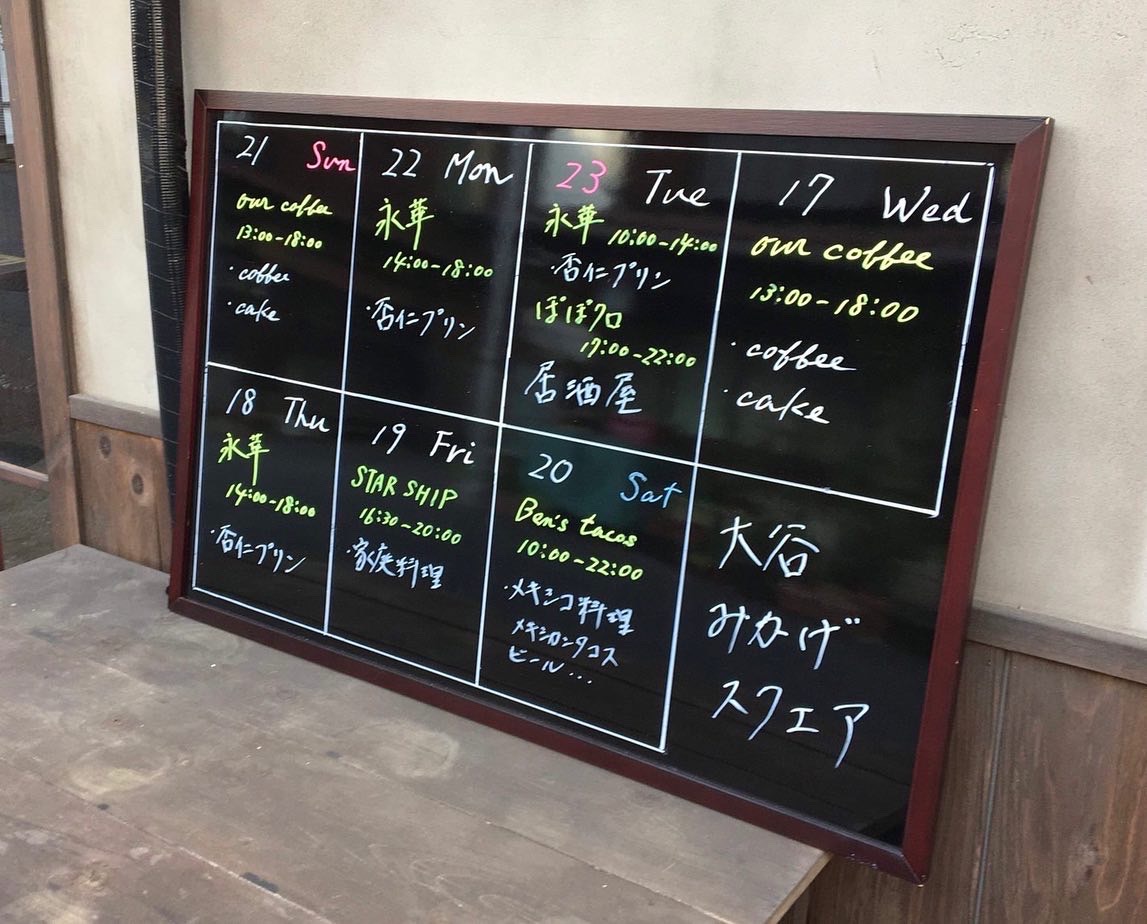 21 Sun
our coffee
13:00-18:00
・coffee
・cake
22 Mon
永華
14:00-18:00
・杏仁プリン
23 Tue
永華 10:00-14:00
・杏仁プリン
ぽぽクロ
17:00-22:00
居酒屋
17 Wed
our coffee
13:00-18:00
・coffee
・cake
18 Thu
永華
14:00-18:00
・杏仁プリン
19 Fri
STAR SHIP
16:30-20:00
・家庭料理
20 Sat
Ben's tacos
10:00-22:00
・メキシコ料理
メキシカンタコス
ビール...
大谷
みかげ
スクエア